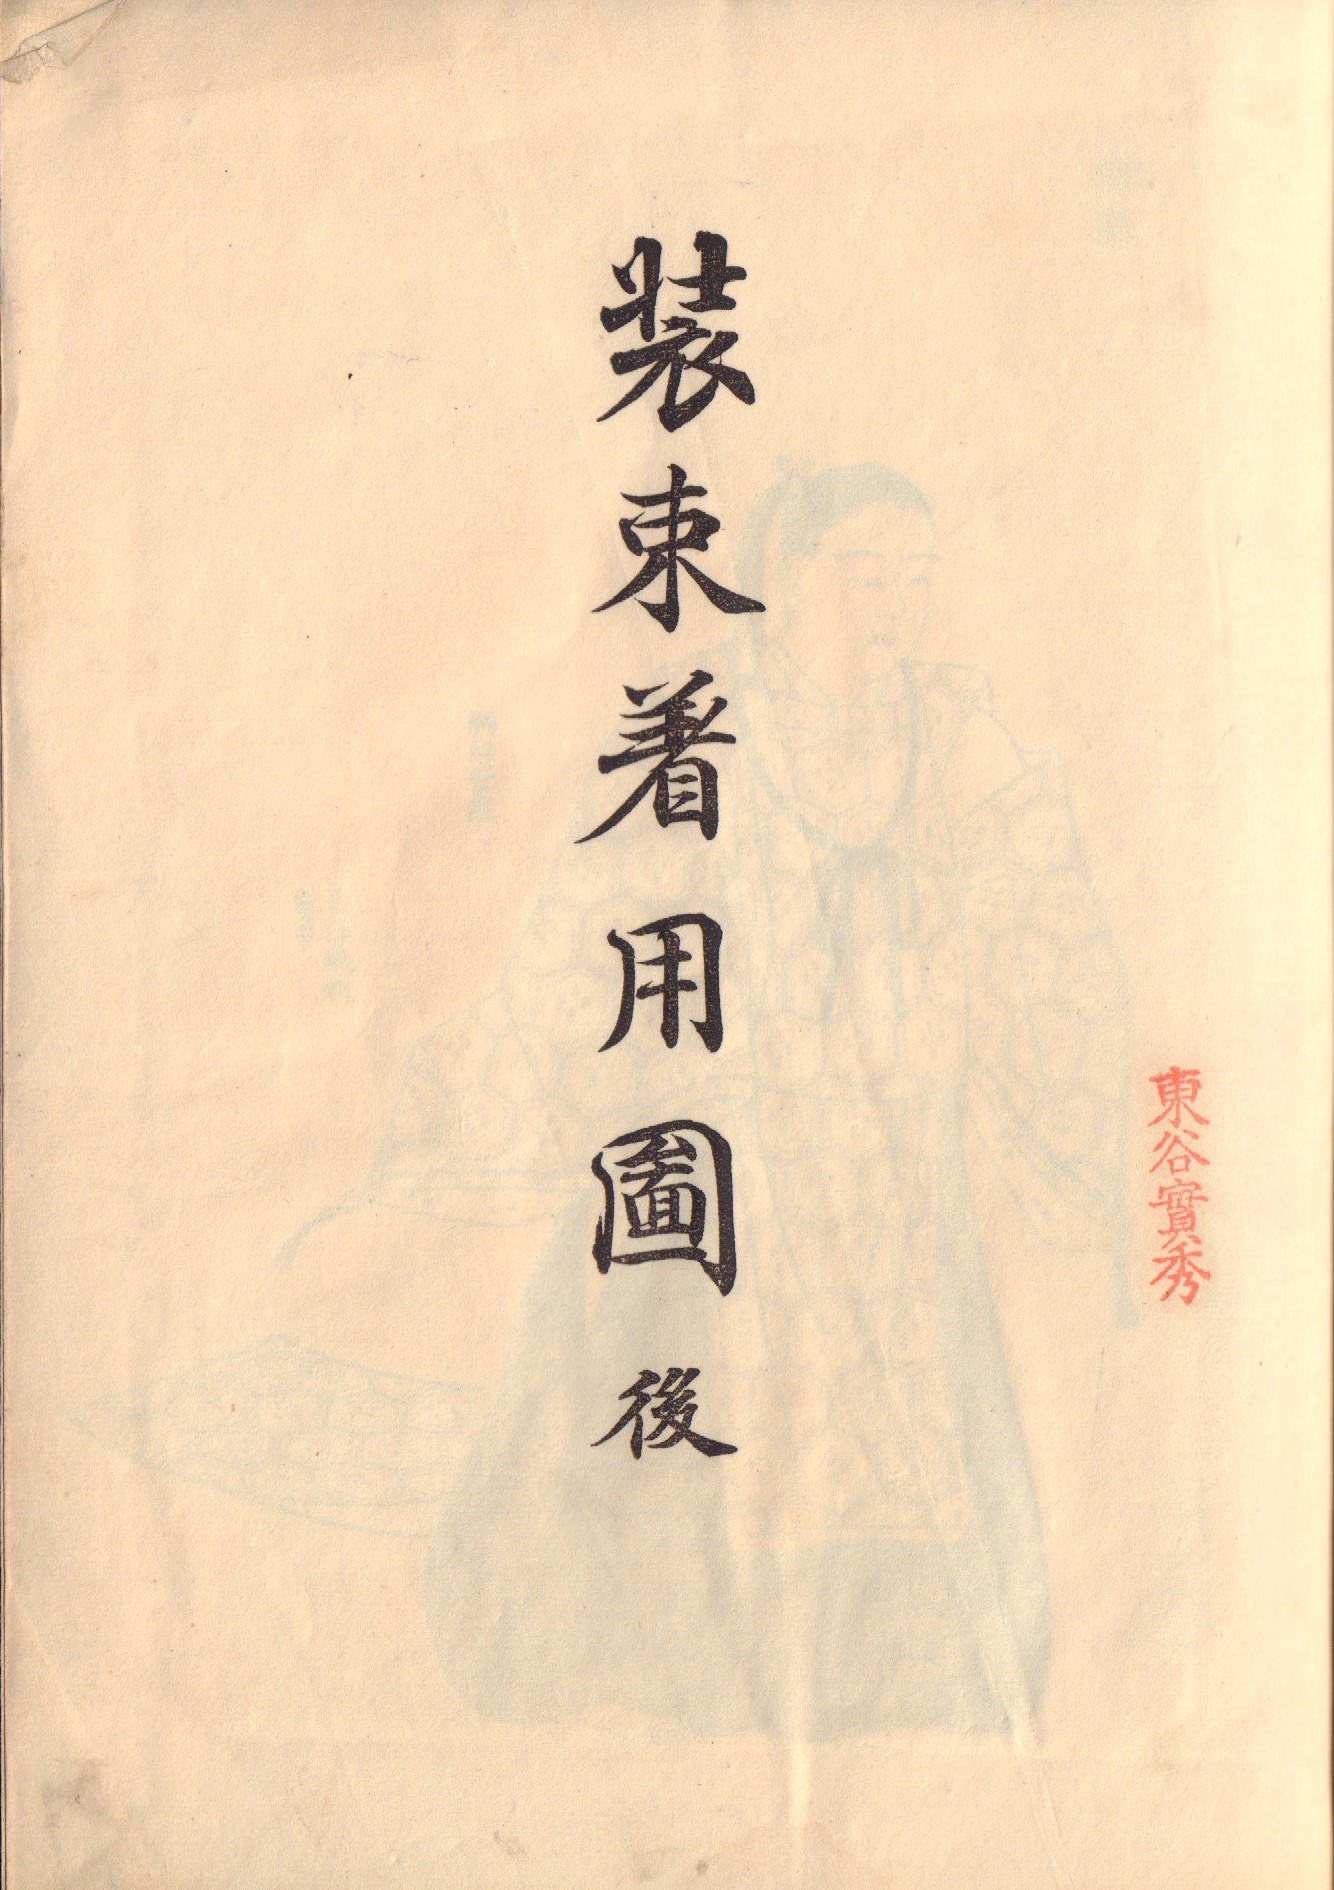 東谷實秀
装束著用圖 後